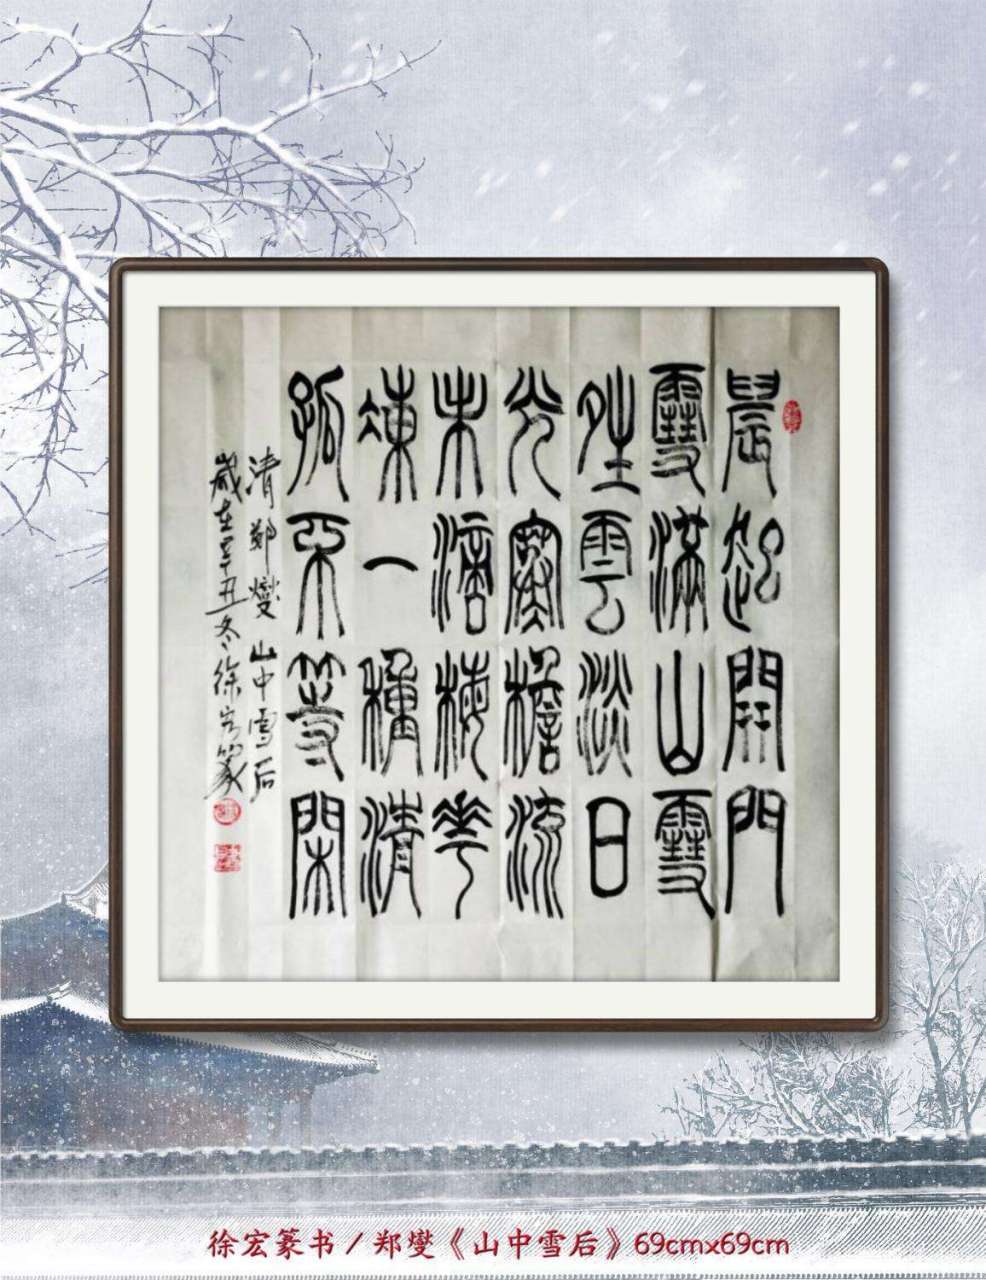 晨起開門
雪滿山雪
晴雲淡日
光寒檐流
未滴梅花
凍一種清
孤不等閑
清鄭燮山中雪后
歲在辛丑冬徐宏篆
徐宏篆书/郑燮《山中雪后》69cmx69cm